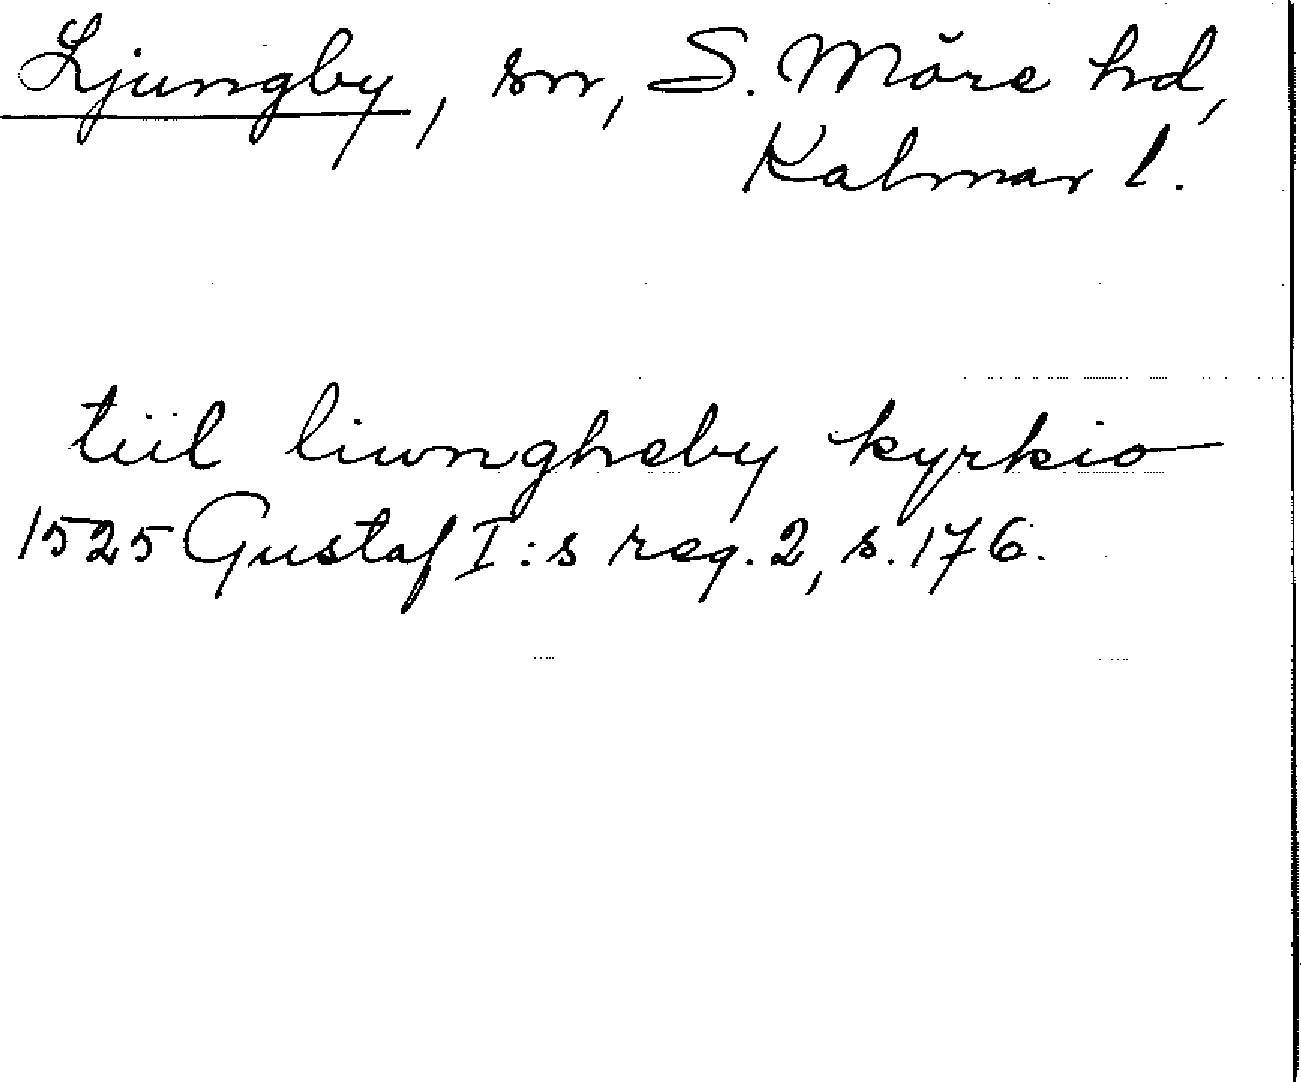 Ljungby, sn, S. Möre hd,
Kalmar l.
tiil liwngheby kyrkio
1525 Gustaf I:s reg. 2, s. 176.